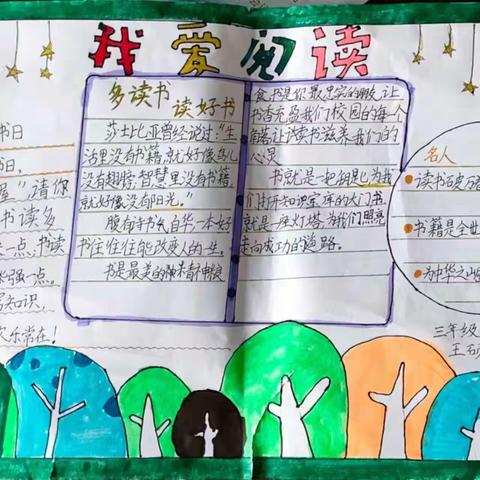 我爱阅读
书日
书日。
屋"请你
书读多
一点,书读
强一点。
知识,
乐常在!
多读书 读好书
莎士比亚曾经说过:"生
活里没有书籍,就好像鸟儿
没有翅膀,智慧里没有书籍,
就好像没有阳光。"
腹有诗书气自华,一本好
书往往能改变人的一生。
书是最美的
书是你最忠实的朋友,让
书香充盈我们校园的每一个
角落,让读书滋养我们的
心灵
书就是一把钥匙,为我
们打开知识宝库的大门书
就是一座灯塔,为我们照亮
走向成功的道路。
名人
读书破万
书籍是全世
为中华之崛
三年级
王